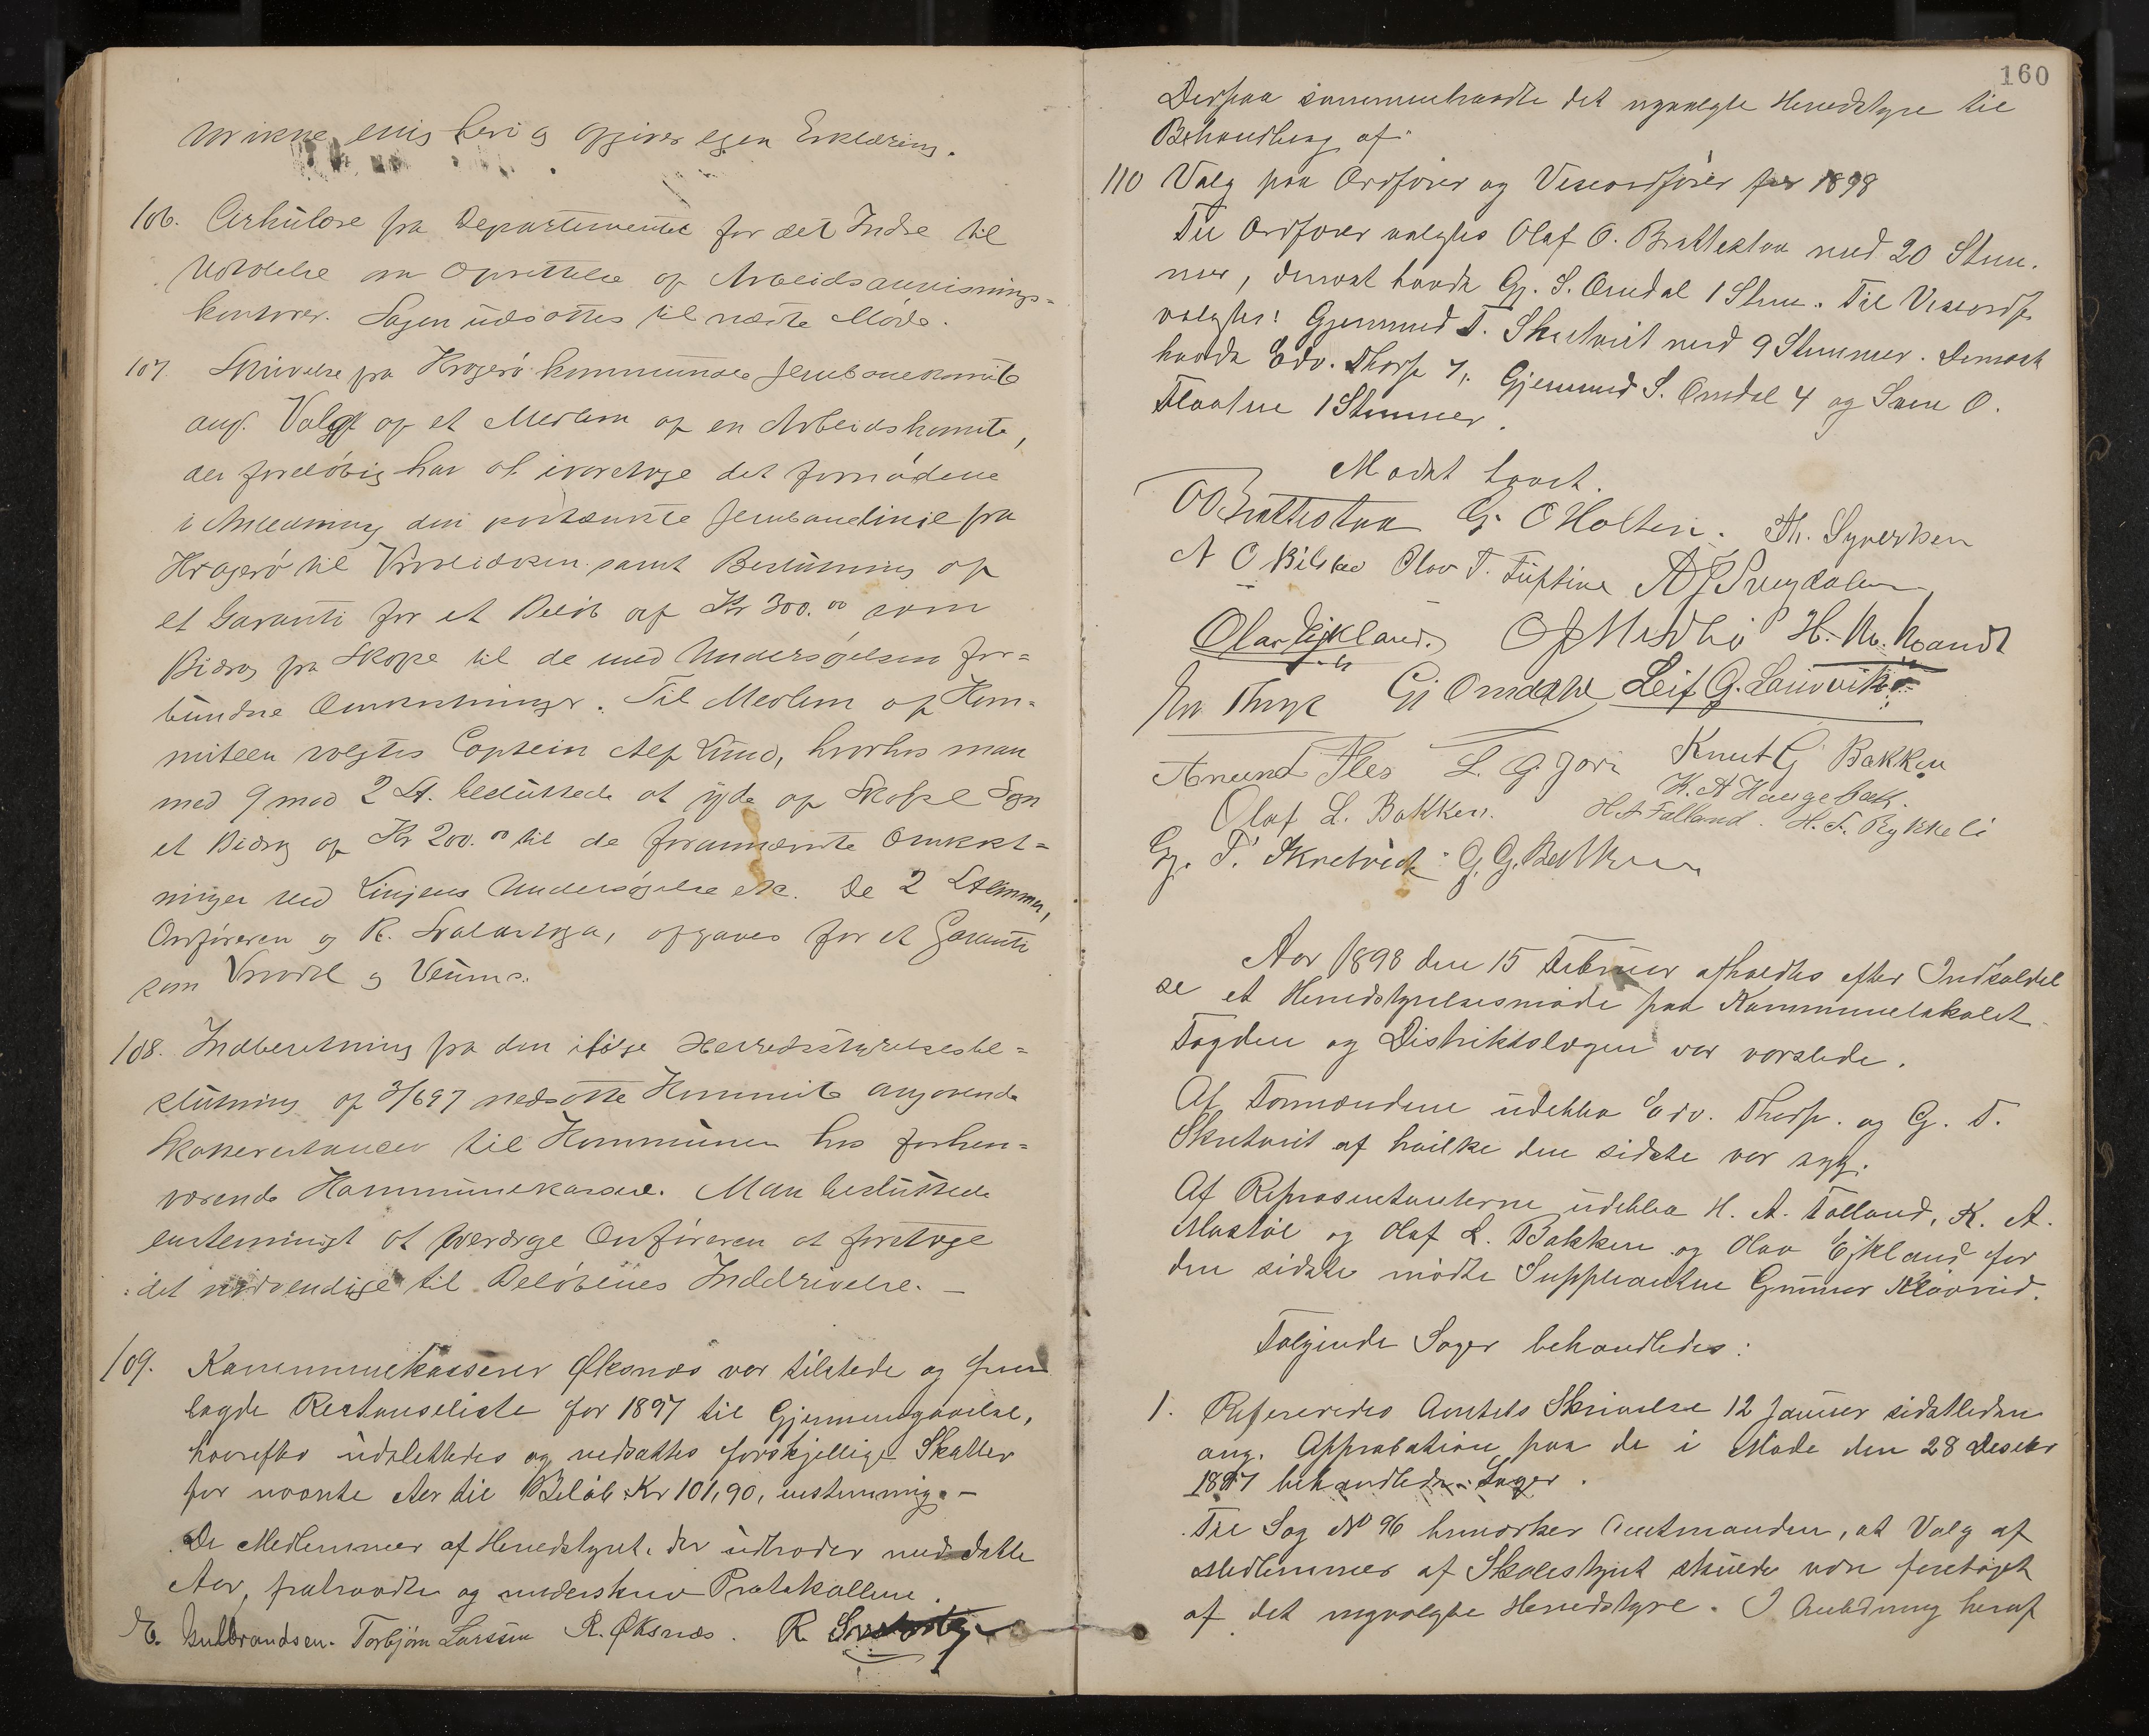 var ikke enig heri og opgiver egen Erklæring.
106. Cirkulære fra Departementet for det Indre til
Udtalelse om Oprettelse af Arbeidsanvisnings-
kontorer. Sagen udsattes til næste Møde.
107. Skrivelse fra Kragerø kommunale Jernbanekomite
ang. Valgt af et Medlem af en Arbeidskomite,
der foreløbig har at ivaretage det fornødne
i Anledning den paatænkte Jernbanelinie fra
Kragerø til samt Beslutning af
et Garanti for et Beløb af Kr 300.00 som
Bidrag fra Skope til de med Undersøgelsen for-
bundne Omkostninger. Til Medlem af Kom-
miteen valgtes Captein Alf Lund, hvorhos man
med 9 mod 2 St. besluttede at yde af Skope Sogn
et Bidrag af Kr 200.00 til de forannævnte Omkost-
ninger ved Linjens Undersøgelse etc. De 2 Stemmer,
Ordføreren og R. afgaves for et Garanti
som og
108. Indberetning fra den ifølge Herredsstyrelsesbe-
slutning af 3/6 97 nedsatte Kommite angaaende
Skatterestancer til Kommunen hos forhen-
værende Kommunekasserer. Man besluttede
enstemmigt at bemyndige Ordføreren at foretage
det nødvendige til Beløbenes Inddrivelse. —
109. Kommunekasserer Øksnæs var tilstede og frem
lagde Restanseliste for 1897 til Gjennemgaaelse,
hvorefter udslettedes og nedsattes forskjellige Skatter
for nævnte Aar til Beløb Kr 101,90, enstemmig. —
De Medlemmer af Herredstyret, der udtræder med dette
Aar, fratraadte og underskrev Protokollene.
E. Gulbrandsen. Torbjørn Larssen R. Øksnæs. R.
160
Derpaa sammentraadte det nyvalgte Herredstyre til
Behandling af:
110 Valg paa Ordfører og Viseordfører for 1898
Til Ordfører valgtes Olaf O. Brattestaa med 20 Stem-
mer, dernæst havde Gj. S. Omdal 1 Stem. Til Viseordf.
valgtes: Gjermund T. Skretveit med 9 Stemmer. Dernæst
havde Edv. Thorp 7, Gjermund S. Omdal 4 og Sven O.
1 Stemmer.
Mødet hævet.
O O Brattestaa G. O Holten. Th. Syversen
N O Olav T. Tuftine
Olav Eikland. H. N.
Gj Omdahl Leif G. Lauvvik
Anund L. G. Knut G Bakken
K. A Haugebak.
Olaf L. Bakken. H A Falland. H. T. Rykkeli
Gj. T. Skretveit G. G. Bakken
Aar 1898 den 15 Februer afholdtes efter Indkaldel
se et Herredstyrelsesmøde paa Kommunelokalet.
Fogden og Distriktslægen var varslede.
Af Formændene udeblev Edv. Thorp. og G. T.
Skretveit af hvilke den sidste var syg.
Af Repræsentanterne udeblev H. A. Falland, K. A.
og Olaf L. Bakken og Olav Eikland for
den sidste mødte Suppleanten Gunner
Følgende Sager behandledes:
1. Refereredes Amtets Skrivelse 12 Januer sidstleden
ang. Approbation paa de i Møde den 28 Desebr
1897 behandlede Sager.
Til Sag No 96 bemærker Amtmanden, at Valg af
Medlemmer af Skolestyret skulde være foretaget
af det nyvalgte Herredstyre. I Anledning heraf